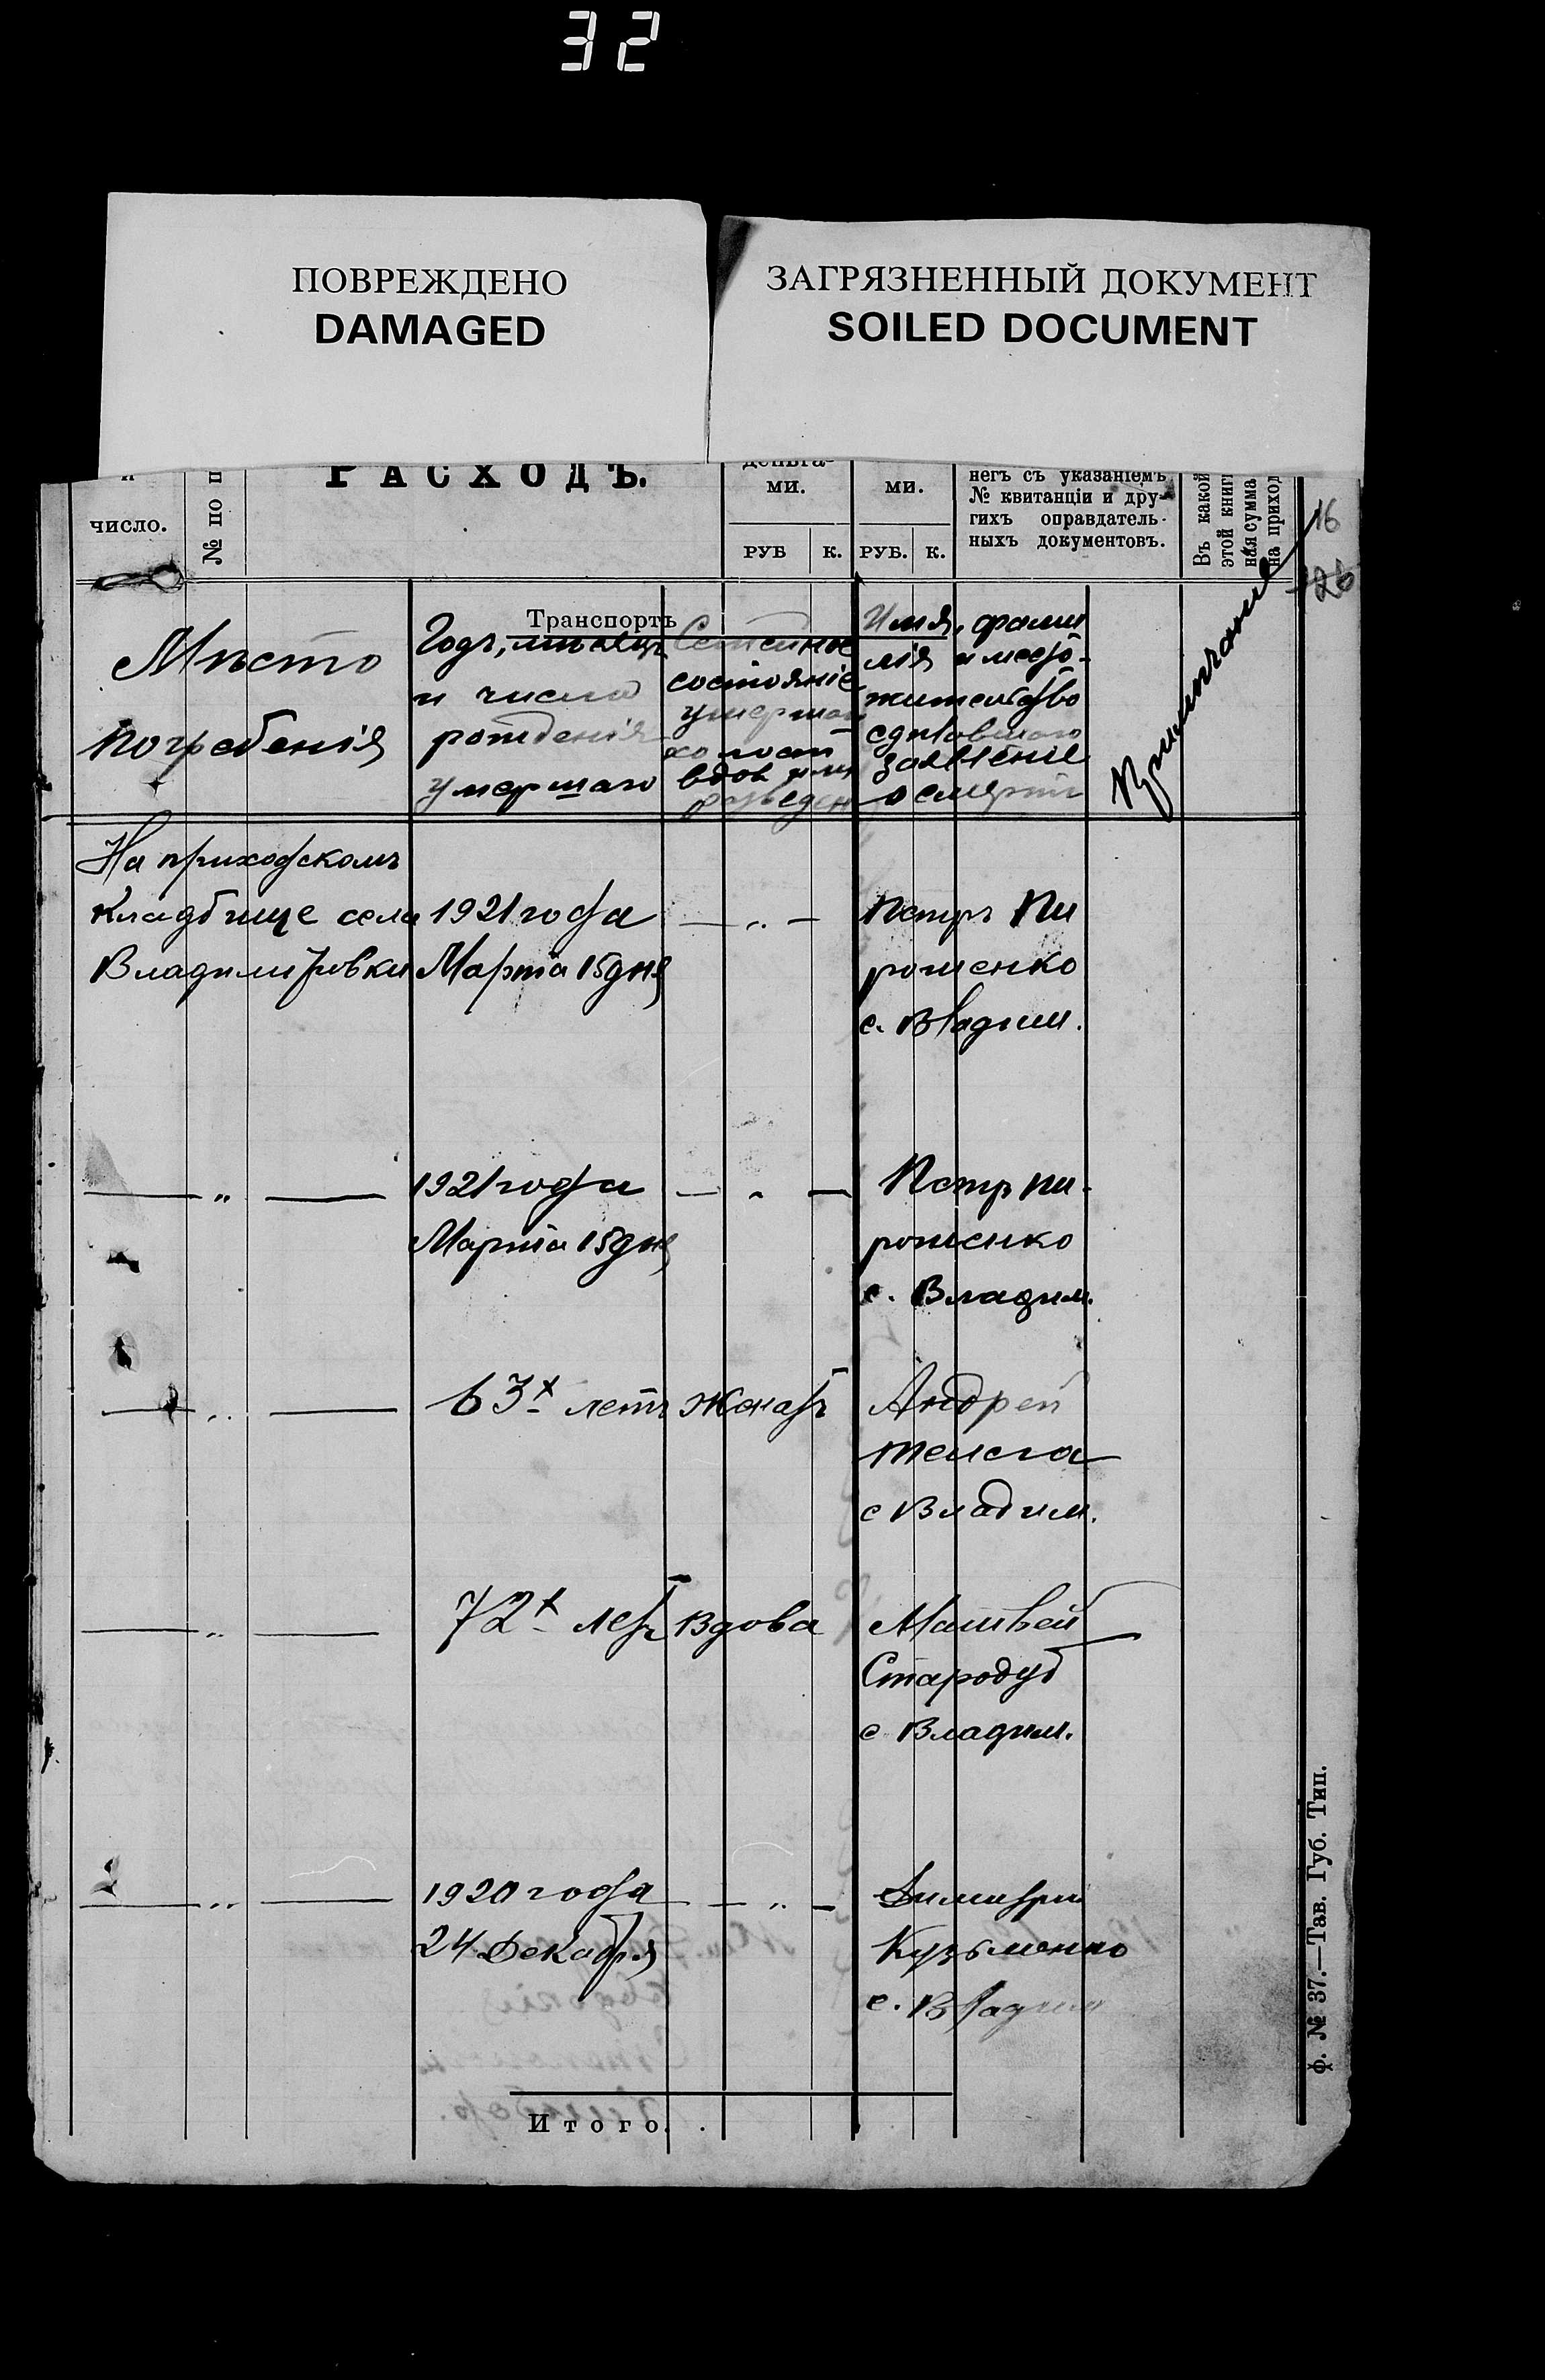 32
ПОВРЕЖДЕНО
DAMAGED
ЗАГРЯЗНЕННЫЙ ДОКУМЕНТ
SOILED DOCUMENT
число.
№ по п
РАСХОДЪ.
деньга-
ми.
РУБ К.
ми.
РУБ. К.
негъ съ указаніемъ
№ квитанціи и дру-
гихъ оправдатель-
ныхъ документовъ.
Въ какой
этой книг
ная сумма
на приход
16
26
Транспортъ
Мѣсто
погребенія
Годъ, мѣсяцъ
и число
рожденія
умершаго
Семейное
состояніе
умершаго
холост
вдов или
разведен
Имя, фами
лія и место-
жительство
сдѣлавшаго
заявленіе
о смерти
Примѣчаніе
На приходскомъ
кладбище села
Владимировки
1921 года
Марта 15 дня
— „ —
Петръ Пи
роженко
с. Владим.
— „ —
1921 года
Марта 15 дня
— „ —
Петръ Пи-
роженко
с. Владим.
— „ —
63х летъ
женатъ
Андрей
с Владим.
— „ —
72х летъ
вдова
Матвей
Стародуб
с Владим.
— „ —
1920 года
24 Декабря
— „ —
Димитрий
Кузьменко
с. Владим
Итого.
ф. № 37.—Тав. Губ. Тип.